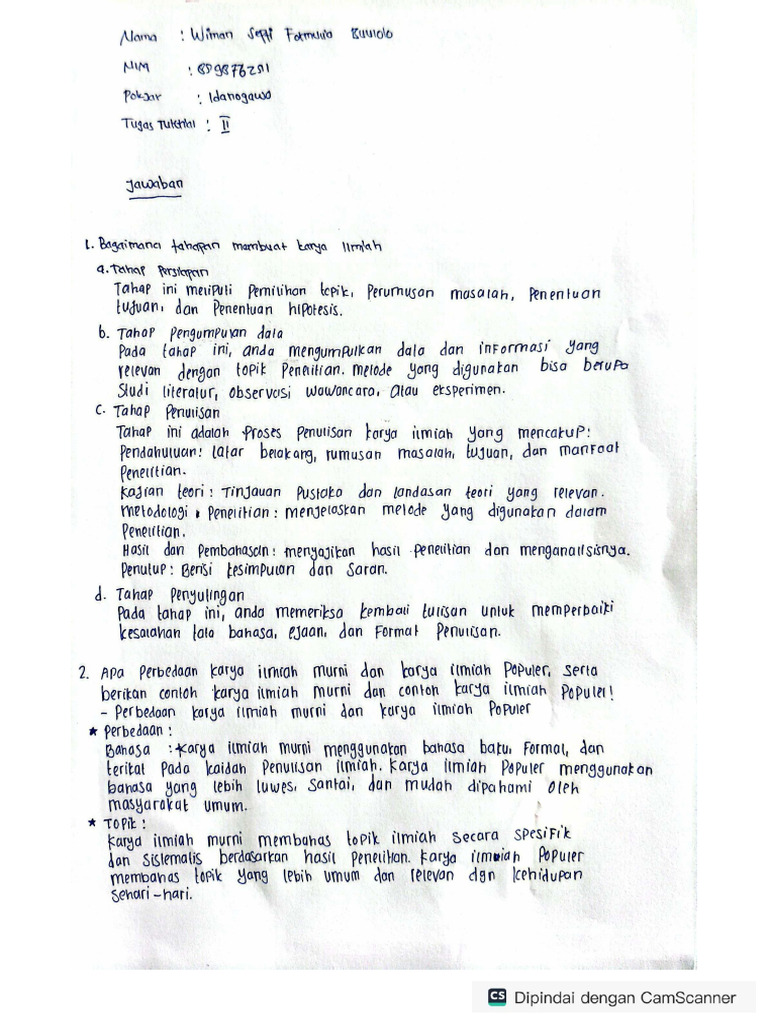 Nama : Wiman Septi Formula
NIM : 859876251
Pokjar : Idanogawo
Tugas Tutorial : II
Jawaban
1. Bagaimana tahapan membuat karya Ilmiah
a. Tahap Persiapan
Tahap ini meliputi Pemilihan topik, Perumusan masalah, Penentuan
tujuan, dan Penentuan hipotesis.
b. Tahap Pengumpulan data
Pada tahap ini, anda mengumpulkan data dan informasi yang
relevan dengan topik Penelitian. metode yang digunakan bisa berupa
Studi literatur, observasi wawancara, atau eksperimen.
c. Tahap Penulisan
Tahap ini adalah Proses Penulisan karya ilmiah yang mencakup:
Pendahuluan: latar belakang, rumusan masalah, tujuan, dan manfaat
Penelitian.
Kajian teori : Tinjauan Pustaka dan landasan teori yang relevan.
Metodologi Penelitian : menjelaskan metode yang digunakan dalam
Penelitian.
Hasil dan Pembahasan : menyajikan hasil Penelitian dan menganalisisnya.
Penutup : Berisi kesimpulan dan Saran.
d. Tahap Penyulingan
Pada tahap ini, anda memeriksa kembali tulisan untuk memperbaiki
kesalahan tata bahasa, ejaan, dan Format Penulisan.
2. Apa Perbedaan karya ilmiah murni dan karya ilmiah Populer, Serta
berikan contoh karya ilmiah murni dan contoh karya ilmiah Populer!
- Perbedaan karya ilmiah murni dan karya ilmiah Populer
* Perbedaan :
Bahasa : karya ilmiah murni menggunakan bahasa baku, Formal, dan
terikat Pada kaidah Penulisan ilmiah. Karya ilmiah Populer menggunakan
bahasa yang lebih luwes, Santai, dan mudah dipahami oleh
masyarakat umum.
* Topik :
Karya ilmiah murni membahas topik ilmiah Secara Spesifik
dan Sistematis berdasarkan hasil Penelitian. Karya ilmiah Populer
membahas topik yang lebih umum dan relevan dgn kehidupan
Sehari-hari.
CS Dipindai dengan CamScanner